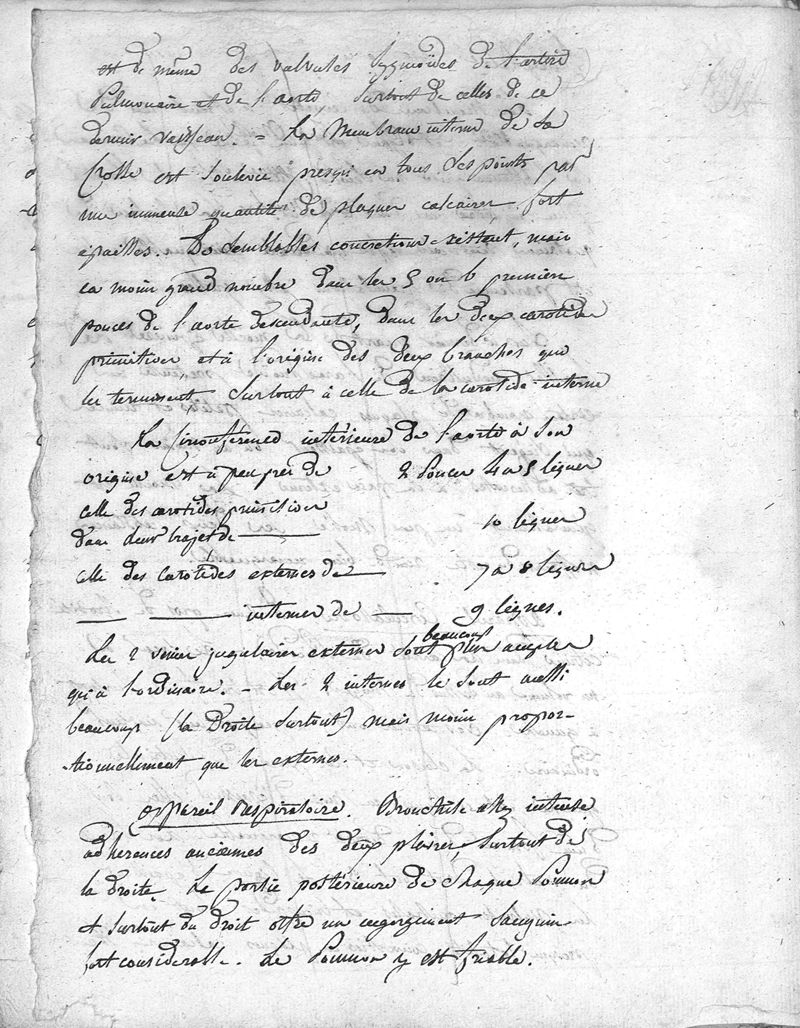 est de même des valvules sygmoïdes de l'artère
Pulmonaire et de l'aorte surtout de celles de ce
dernier vaisseau. = La Membrane interne de la
Crosse est soulevée presqu'en tous les points par
une immense quantité de plaques calcaires fort
épaisses. De semblables concretions existent, mais
en moins grand nombre dans les 5 ou 6 premiers
pouces de l'aorte descendante, dans les deux carotides
primitives et à l'origine des deux branches qui
les terminent surtout à celle de la carotide interne
La Circonférence intérieure de l'aorte à son
origine est à peu près de 2 Pouces 4 a 5 lignes
celle des carotides primitives
dans leur trajet de — 10 lignes
celle des carotides externes de — 7 a 8 lignes
— — internes de — 9 lignes.
Les 2 veines jugulaires externes sont beaucoup plus amples
qu'à l'ordinaire. — Les 2 internes le sont aussi
beaucoup (la Droite surtout) mais moins propor-
tionnellement que les externes.
appareil Respiratoire. Bronchite assez intense
adherences anciennes des deux plèvres, surtout de
la droite. La partie postérieure de chaque Poumon
et surtout du droit offre un engorgement sanguin
fort considerable. Le Poumon y est friable.